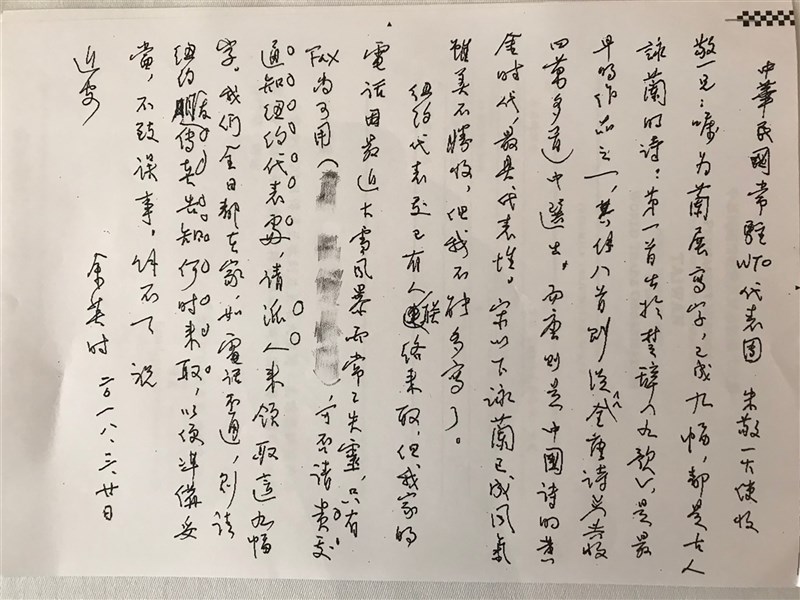 中華民國常駐WTO代表團 朱敬一大使收
敬一兄：囑为蘭展寫字，已成九幅，都是古人
詠蘭的詩：第一首出於楚辭《九歌》，是最
早的作品之一，其餘八首則從《全唐詩》（共收
四萬多首）中選出。而唐則是中國詩的黃
金时代，最具代表性。宋以下詠蘭已成风氣
雖美不勝收，但我不能多寫了。
紐約代表处已有人联絡来取，但我家的
電话因最近大雪风暴而常常失靈，只有
Fax尚可用（ ），可否請貴处
通知紐約代表處，请派人来領取這九幅
字。我們全日都在家，如電话不通，則请
紐約友傳真告知何时来取，以便準備妥
當，不致误事，餘不一一 祝
近安
余英时 二〇一八、三、廿日